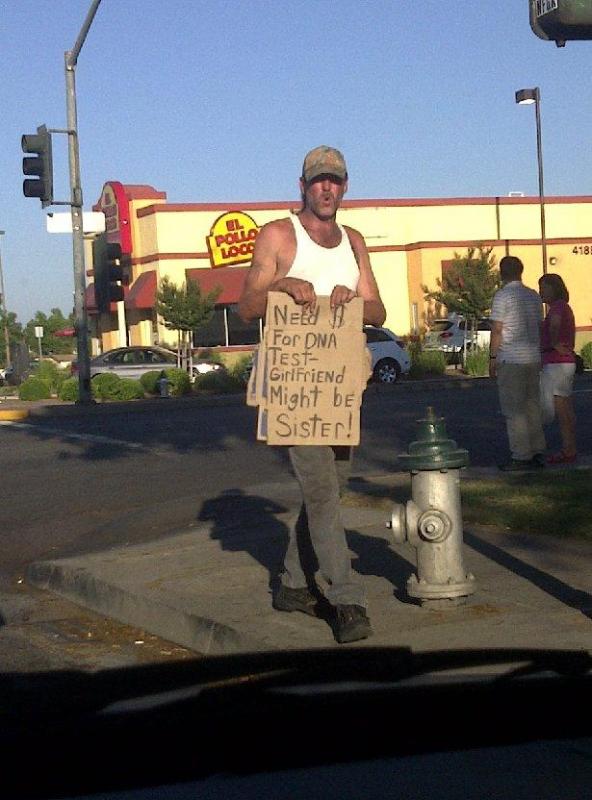 EL
POLLO
LOCO
418
Need $
For DNA
Test-
GirlFriend
Might be
Sister!